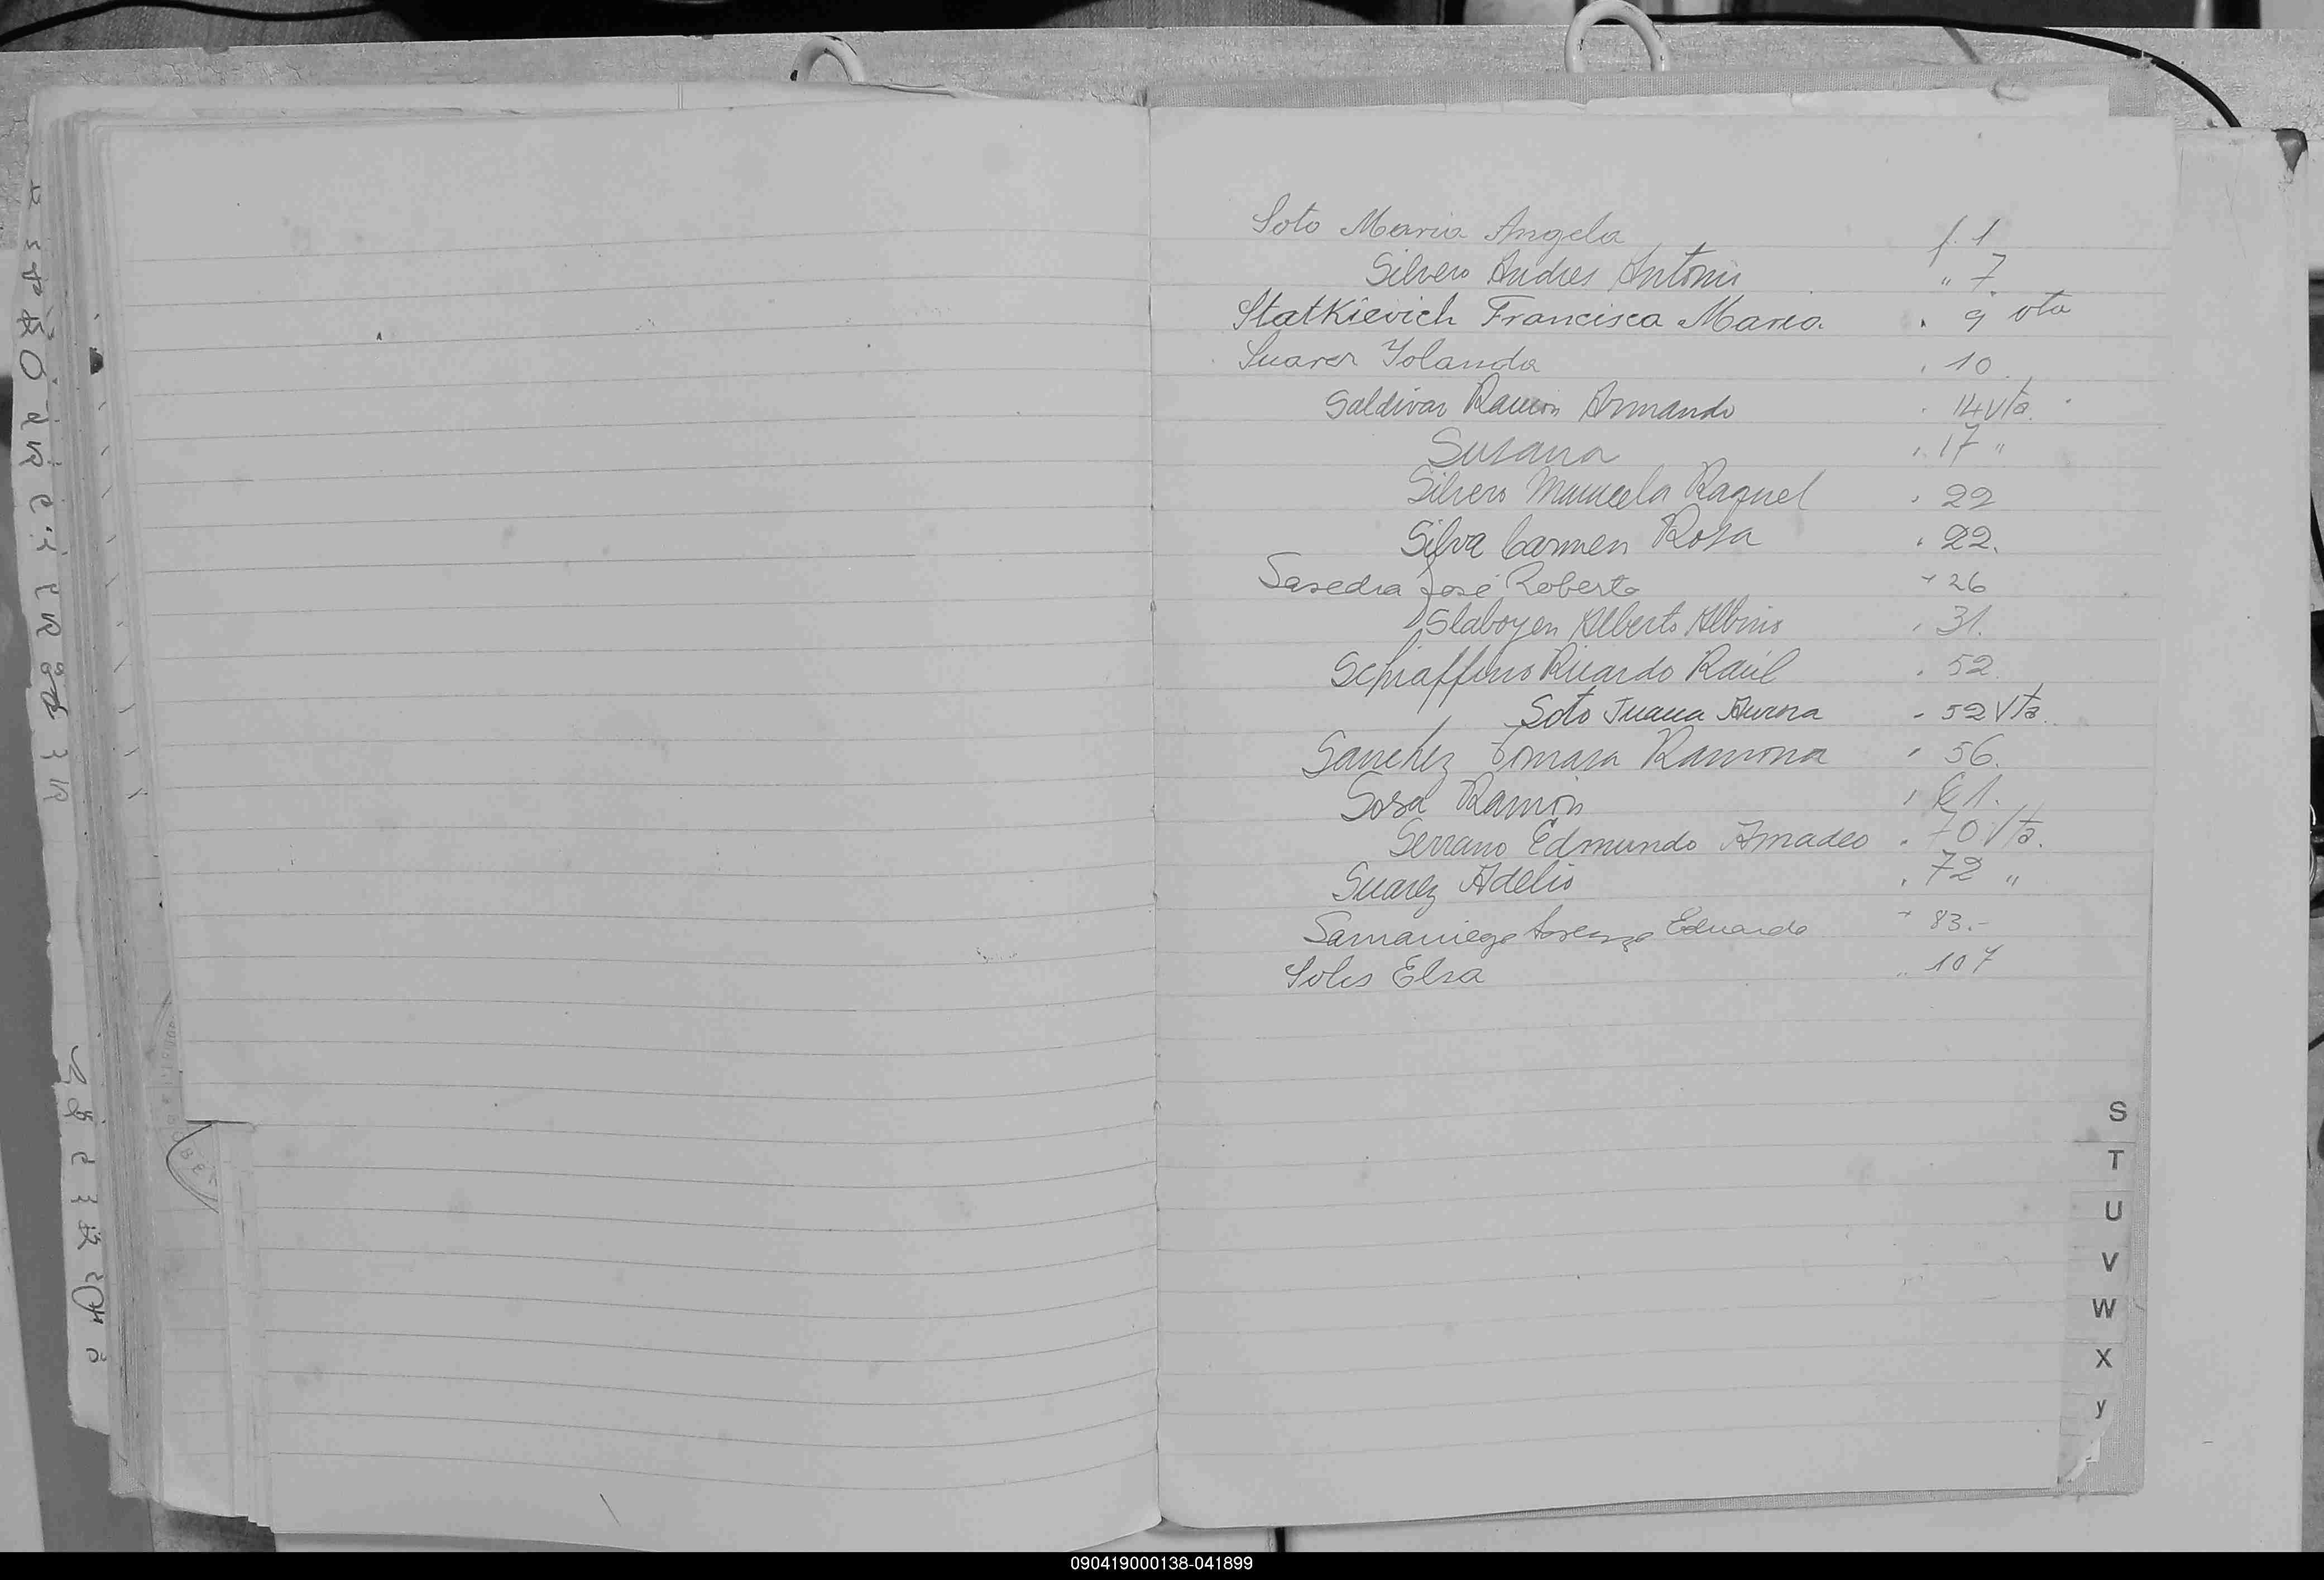 Soto Maria Angela f. 1
Silvero Andres Antonio " 7.
Statkievich Francisca Maria. " 9 vta
Suarez Yolanda " 10
Saldivar Ramón Armando " 14 Vta.
Susana " 17 "
Silvero Manuela Raquel " 22
Silva Carmen Rosa " 22.
Savedra José Roberto " 26
Slaboyen Alberto Albino " 31.
Schiaffino Ricardo Raúl " 52
Soto Juana Aurora " 52 Vta.
Sanchez Tomasa Ramona " 56.
Sosa Ramón " 61.
Serrano Edmundo Amadeo " 70 Vta.
Suarez Adelio " 72 "
Samaniego Lorenzo Eduardo " 83.-
Solis Elsa " 107
S
T
U
V
W
X
y
090419000138-041899